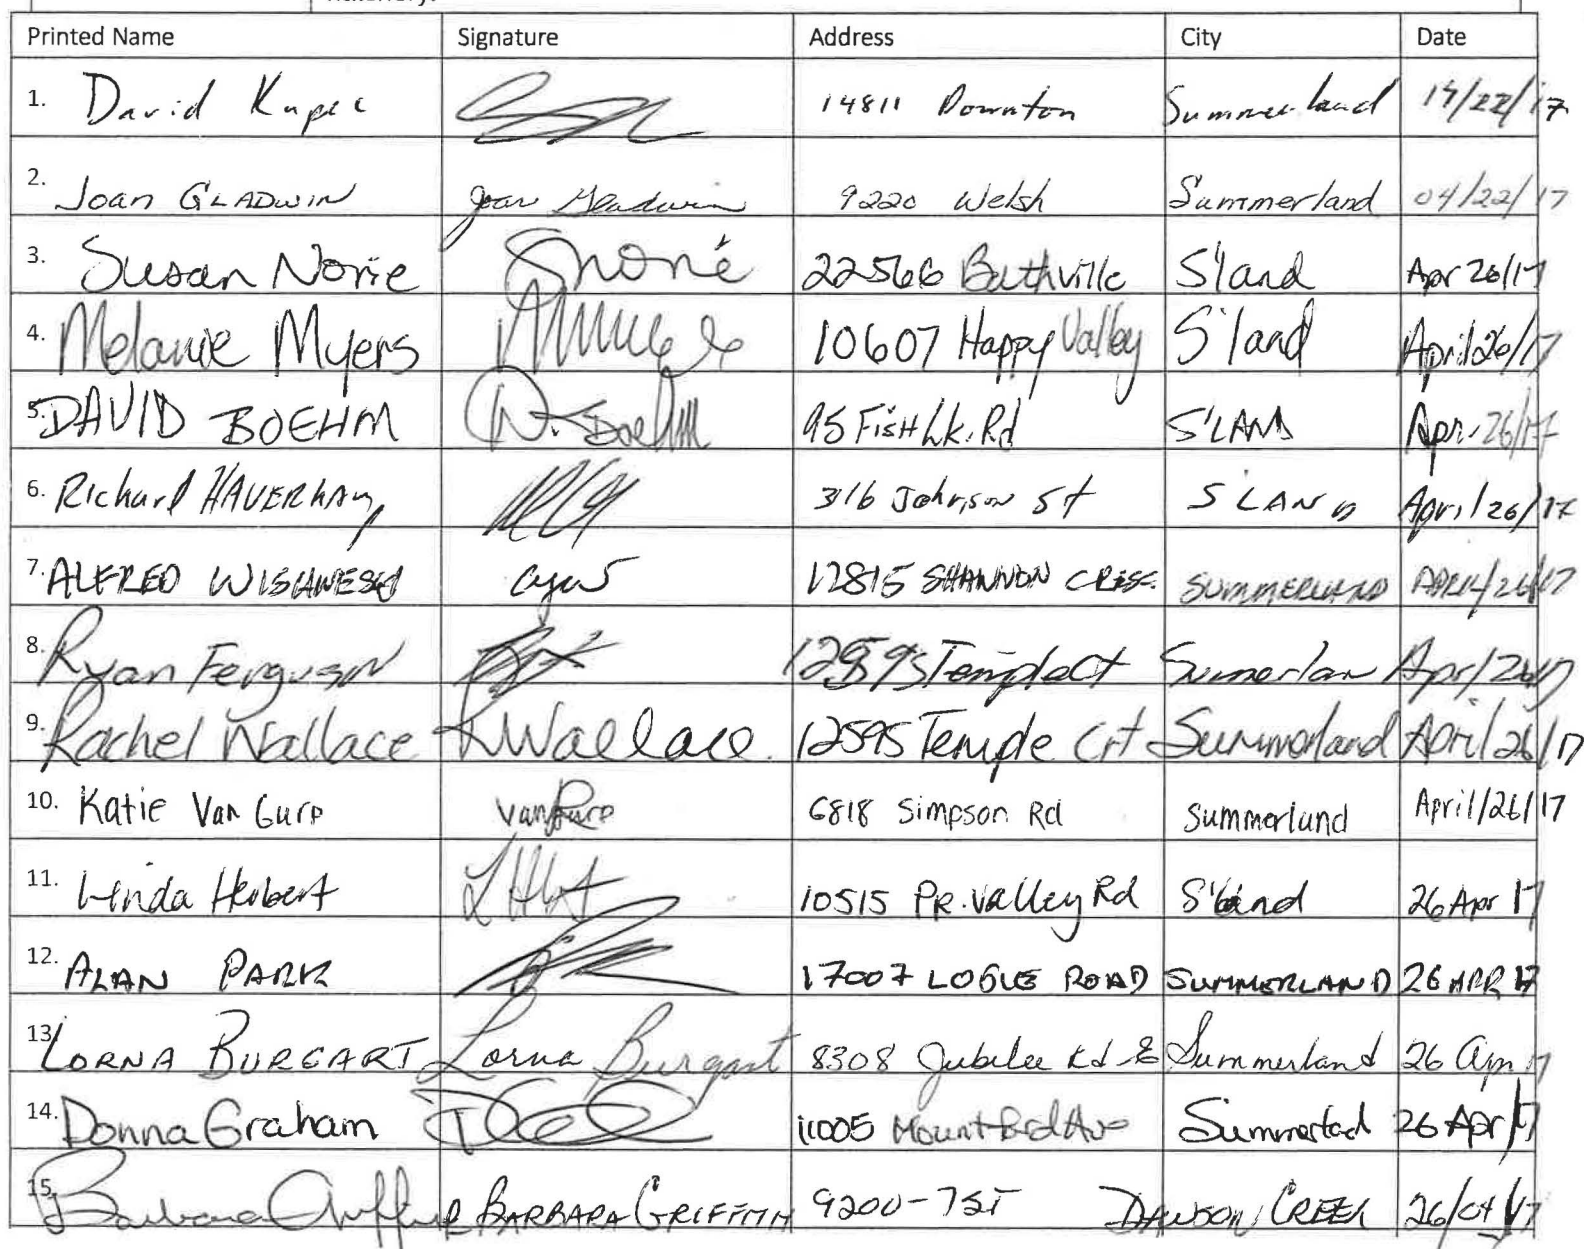 Printed Name Signature Address City Date
1. David Kupec 14811 Downton Summerland 14/22/17
2. Joan GLADWIN Joan Gladwin 9220 Welsh Summerland 04/22/17
3. Susan Norie SNorie 22566 Bathville S'land Apr 26/17
4. Melanie Myers 10607 Happy Valley S'land April 26/17
5. DAVID BOEHM D. Boehm 95 FisH Lk. Rd S'LAND Apr. 26/17
6. Richard HAVERHAM 316 Johnson St S'LAND April 26/17
7. ALFRED 12815 SHANNON CRESC. SUMMERLAND APRIL/26/17
8. Ryan Ferguson Temple Ct Sumerlan Apr/26/17
9. Rachel Wallace RWallace. 12595 Temple Crt Summerland April/26/17
10. Katie Van Gurp VanGurp 6818 Simpson Rd Summerland April/26/17
11. Linda Herbert 10515 PR. Valley Rd S'land 26 Apr 17
12. ALAN PARK 17007 LOGUE ROAD SUMMERLAND 26 APR 17
13. LORNA BURGART Lorna Burgart 8308 Jubilee Rd E Summerland 26 Apr 17
14. Donna Graham 11005 Mountford Ave 26 Apr/17
15. Barbara Griffith BARBARA GRIFFITH 9200-7ST DAWSON CREEK 26/04/17